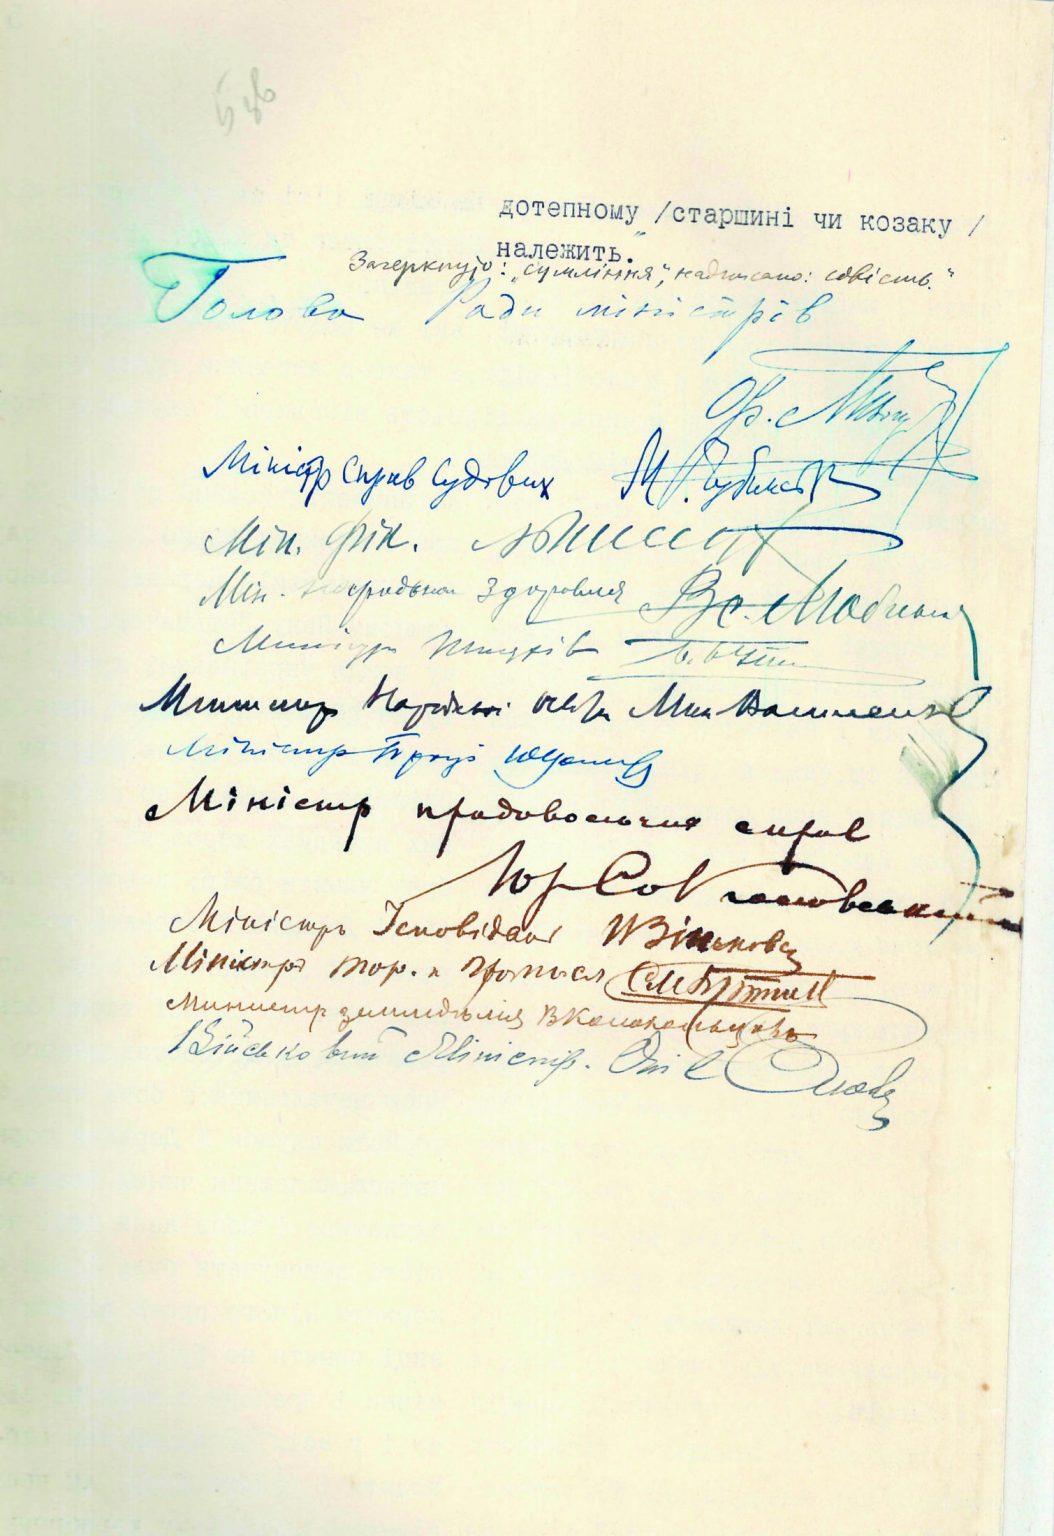 дотепному /старшині чи козаку /
належить."
Зачеркнуто: „сумління", надписано: совість."
Голова Ради міністрів
Міністр Справ Судових М. Чубинський
Мін. Фін.
Мін. Народнього Здоровля Вс. Любинський
Министр шляхів
Министр Народньої Мик Василенко
Міністр Праці Ю Вагнер
Міністр продовольчих справ
Юр Соколовський
Міністр Ісповідань В Зіньковс
Міністр тор. и Промысл
Министр земледелия В Колокольцовъ
Військовий Міністр.